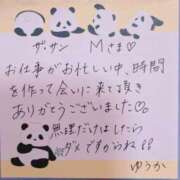 ザ・サン Mさま♡
お仕事がお忙しい中、時間
を作って会いに来て頂き
ありがとうございました♡。
無理だけはしたら
ダメですからね!!
ゆうか